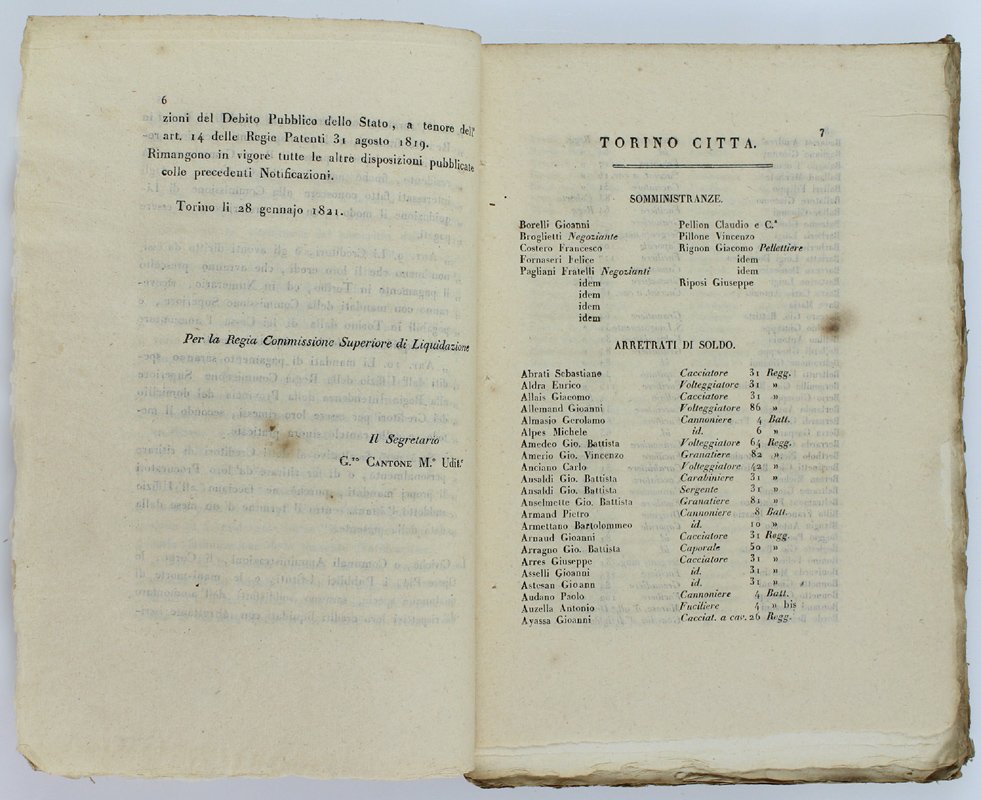 6
zioni del Debito Pubblico dello Stato, a tenore dell'
art. 14 delle Regie Patenti 31 agosto 1819.
Rimangono in vigore tutte le altre disposizioni pubblicate
colle precedenti Notificazioni.
Torino li 28 gennajo 1821.
Per la Regia Commissione Superiore di Liquidazione
Il Segretario
G.ro CANTONE M.o Udit.e
7
TORINO CITTA.
SOMMINISTRANZE.
Borelli Gioanni
Broglietti Negoziante
Costero Francesco
Fornaseri Felice
Pagliani Fratelli Negozianti
idem
idem
idem
idem
Pellion Claudio e C.a
Pillone Vincenzo
Rignon Giacomo Pellettiere
idem
idem
Riposi Giuseppe
ARRETRATI DI SOLDO.
Abrati Sebastiano Cacciatore 31 Regg.
Aldra Enrico Volteggiatore 31 »
Allais Giacomo Cacciatore 31 »
Allemand Gioanni Volteggiatore 86 »
Almasio Gerolamo Cannoniere 4 Batt.
Alpes Michele id. 6 »
Amedeo Gio. Battista Volteggiatore 64 Regg.
Amerio Gio. Vincenzo Granatiere 82 »
Anciano Carlo Volteggiatore 42 »
Ansaldi Gio. Battista Carabiniere 31 »
Ansaldi Gio. Battista Sergente 31 »
Anselmette Gio. Battista Granatiere 81 »
Armand Pietro Cannoniere 8 Batt.
Armettano Bartolommeo id. 10 »
Arnaud Gioanni Cacciatore 31 Regg.
Arragno Gio. Battista Caporale 50 »
Arres Giuseppe Cacciatore 31 »
Asselli Gioanni id. 31 »
Astesan Gioann id. 31 »
Audano Paolo Cannoniere 4 Batt.
Auzella Antonio Fuciliere 4 » bis
Ayassa Gioanni Cacciat. a cav. 26 Regg.